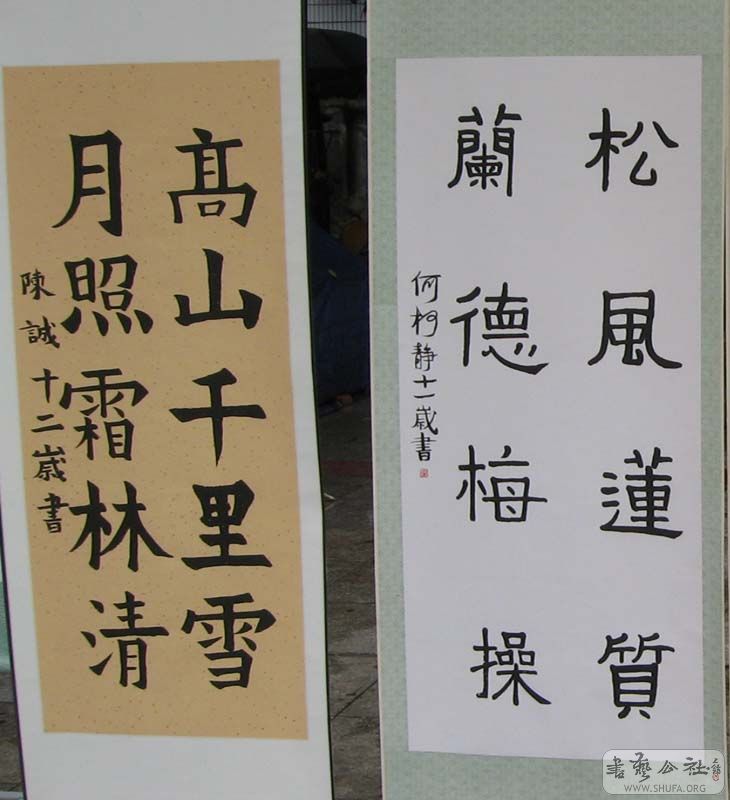 松風蓮質
蘭德梅操
何柯静十一歲書
髙山千里雪
月照霜林清
陳誠十二歲書
書藝公社
WWW.SHUFA.ORG